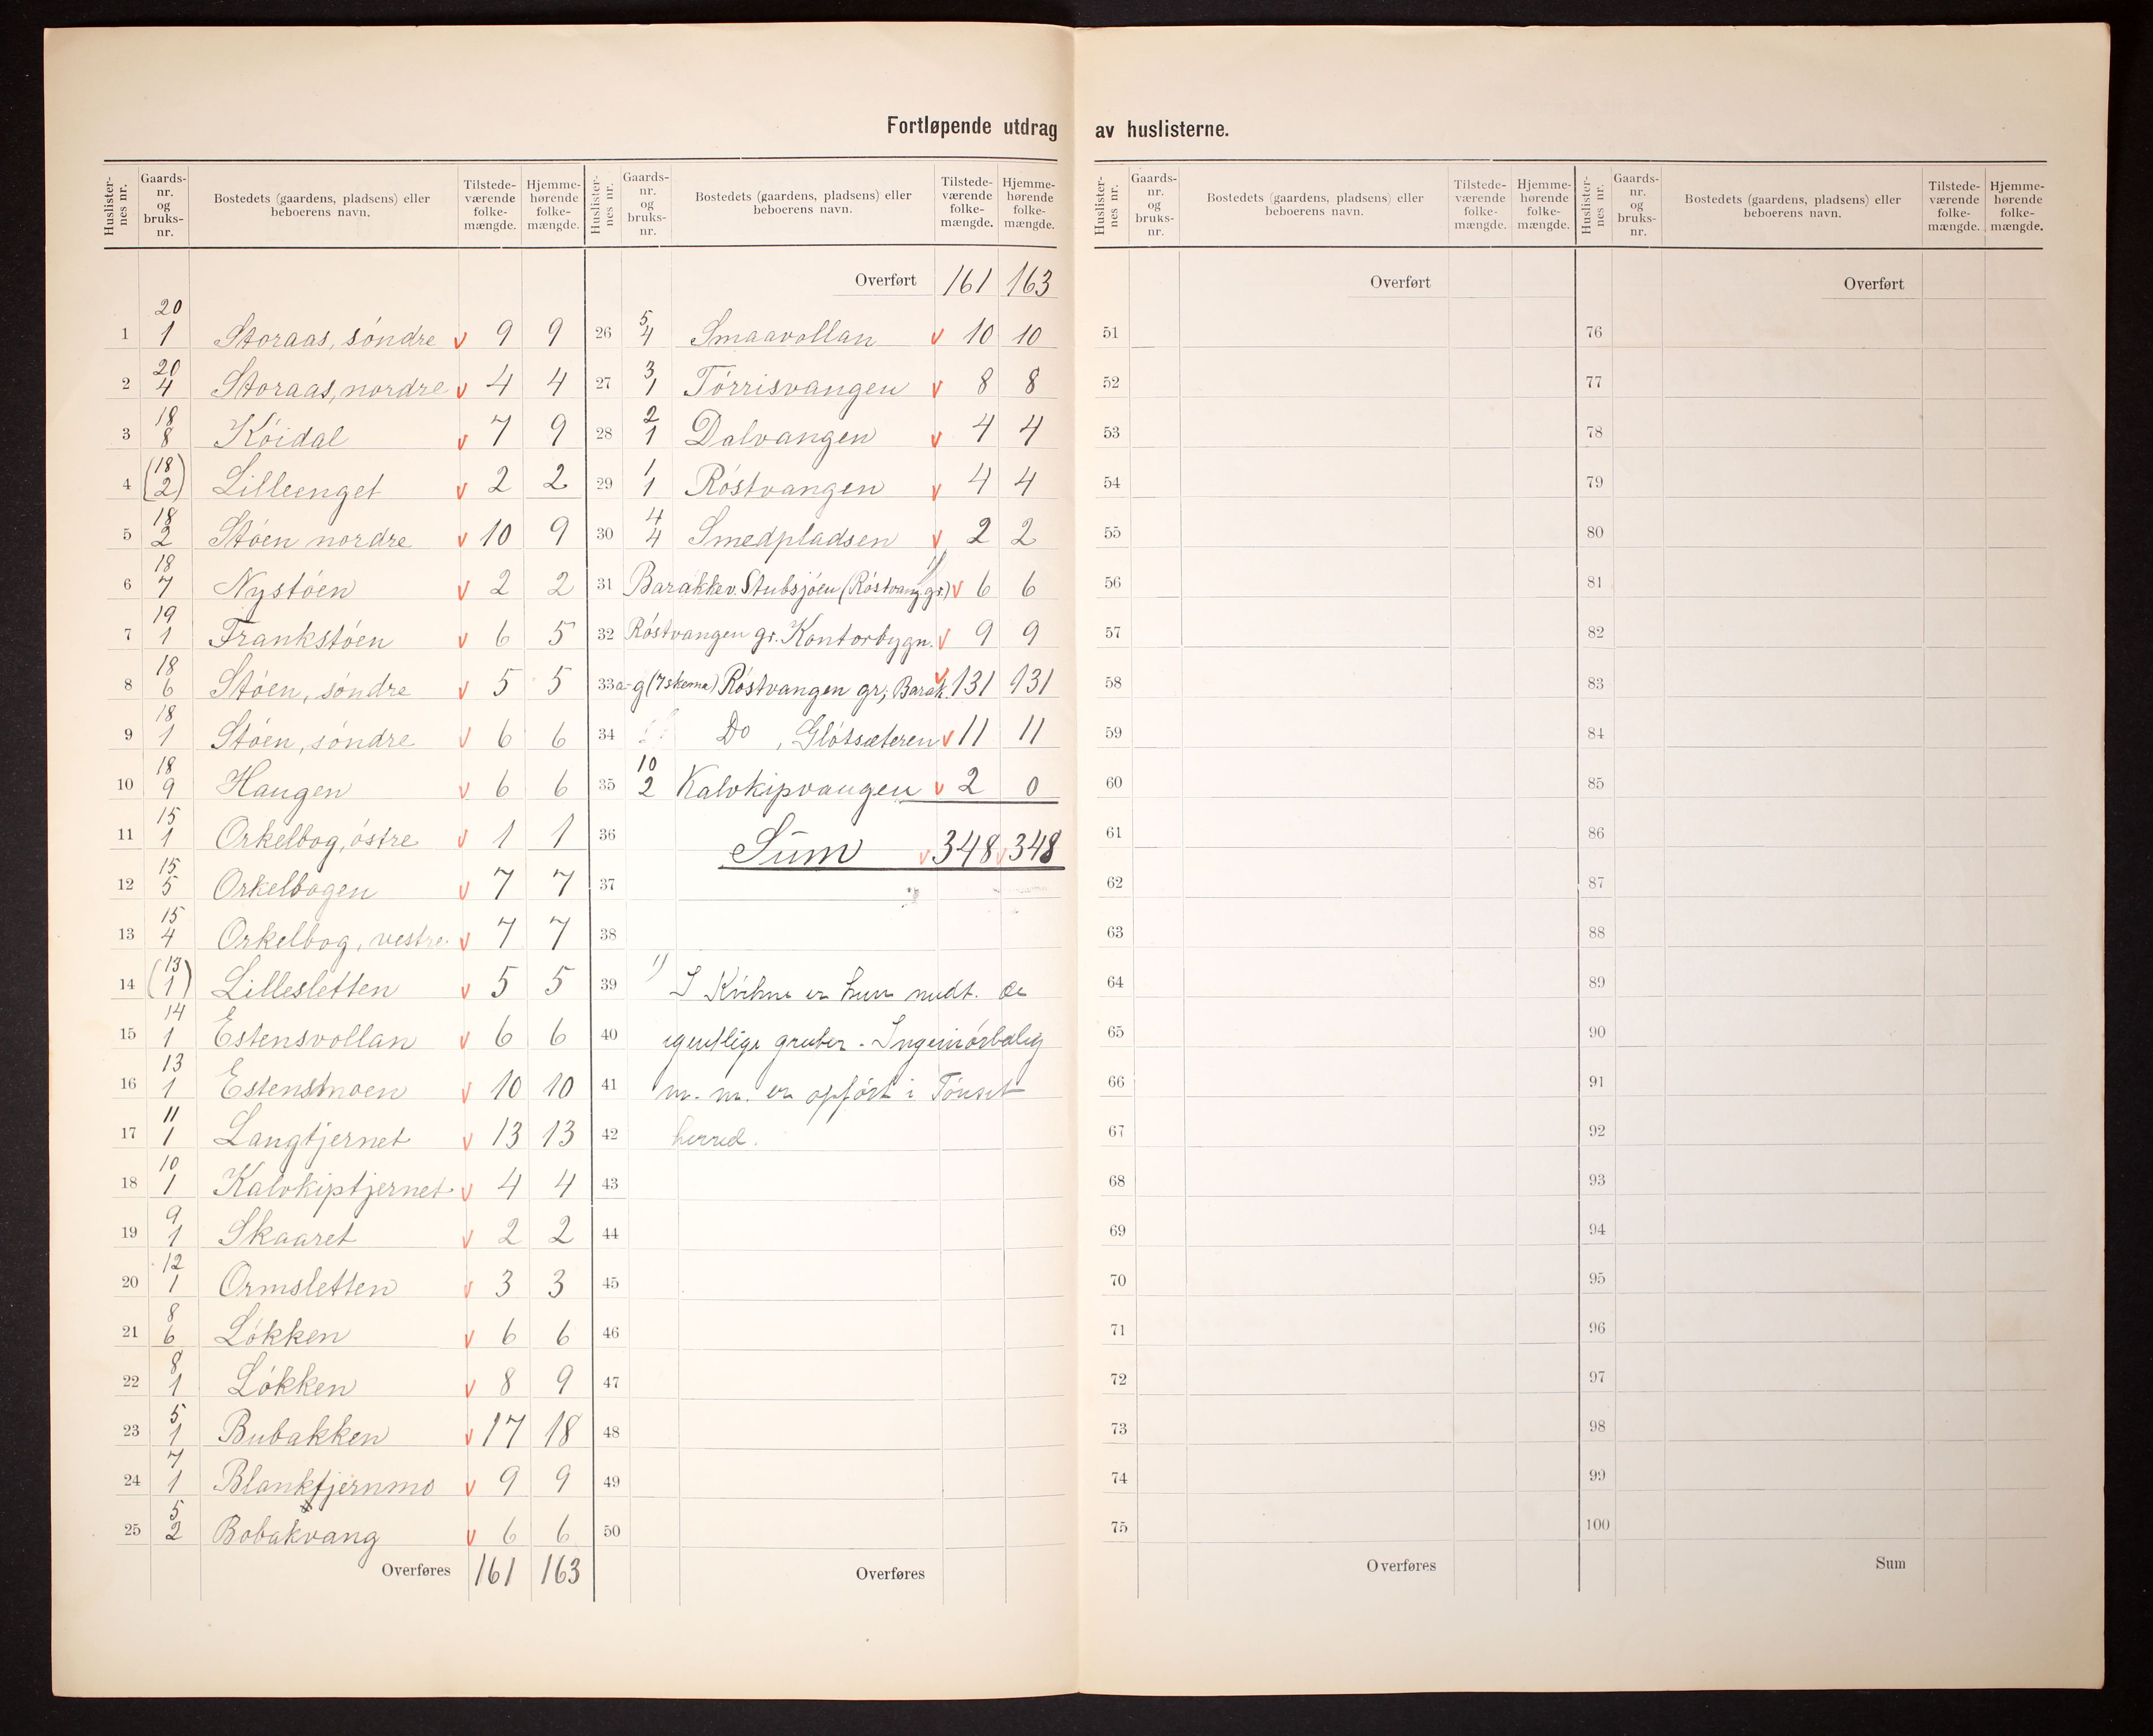 Fortløpende utdrag av huslisterne.
Huslisternes nr. Gaards-nr. og bruks-nr. Bostedets (gaardens, pladsens) eller beboerens navn. Tilstede-værende folke-mængde. Hjemme-hørende folke-mængde.
1 20 1 Storaas, söndre v 9 9
2 20 4 Storaas, nordre v 4 4
3 18 8 Köidal v 7 9
4 (18 2) Lilleenget v 2 2
5 18 2 Stöen nordre v 10 9
6 18 7 Nystöen v 2 2
7 19 1 Frankstöen v 6 5
8 18 6 Stöen, söndre v 5 5
9 18 1 Stöen, söndre v 6 6
10 18 9 Haugen v 6 6
11 15 1 Orkelbog, östre v 1 1
12 15 5 Orkelbogen v 7 7
13 15 4 Orkelbog, vestre v 7 7
14 (13 1) Lillesletten v 5 5
15 14 1 Estensvollan v 6 6
16 13 1 Estensmoen v 10 10
17 11 1 Langtjernet v 13 13
18 10 1 Kalvkiptjernet v 4 4
19 9 1 Skaaret v 2 2
20 12 1 Ormsletten v 3 3
21 8 6 Lökken v 6 6
22 8 1 Lökken v 8 9
23 5 1 Bubakken v 17 18
24 7 1 Blanktjernmo v 9 9
25 5 2 Bobakvang v 6 6
Overføres 161 163
Huslisternes nr. Gaards-nr. og bruks-nr. Bostedets (gaardens, pladsens) eller beboerens navn. Tilstede-værende folke-mængde. Hjemme-hørende folke-mængde.
Overført 161 163
26 5 4 Smaavollan v 10 10
27 3 1 Törrisvangen v 8 8
28 2 1 Dalvangen v 4 4
29 1 1 Röstvangen v 4 4
30 4 4 Smedpladsen v 2 2
31 Barakke v. Stubsjöen (Röstvang gr.) 1) v 6 6
32 Röstvangen gr. Kontorbygn. v 9 9
33 a-g (7 skema) Röstvangen gr; Barak. v 131 131
34 Do , Glötsæteren v 11 11
35 10 2 Kalvkipvangen v 2 0
36 Sum v 348 v 348
37
38
39 1) I Kvikne er kun medt. de
40 egentlige gruber. Ingeniörbolig
41 m. m. er opfört i Tönset
42 herred.
43
44
45
46
47
48
49
50
Overføres
Huslisternes nr. Gaards-nr. og bruks-nr. Bostedets (gaardens, pladsens) eller beboerens navn. Tilstede-værende folke-mængde. Hjemme-hørende folke-mængde.
Overført
51
52
53
54
55
56
57
58
59
60
61
62
63
64
65
66
67
68
69
70
71
72
73
74
75
Overføres
Huslisternes nr. Gaards-nr. og bruks-nr. Bostedets (gaardens, pladsens) eller beboerens navn. Tilstede-værende folke-mængde. Hjemme-hørende folke-mængde.
Overført
76
77
78
79
80
81
82
83
84
85
86
87
88
89
90
91
92
93
94
95
96
97
98
99
100
Sum